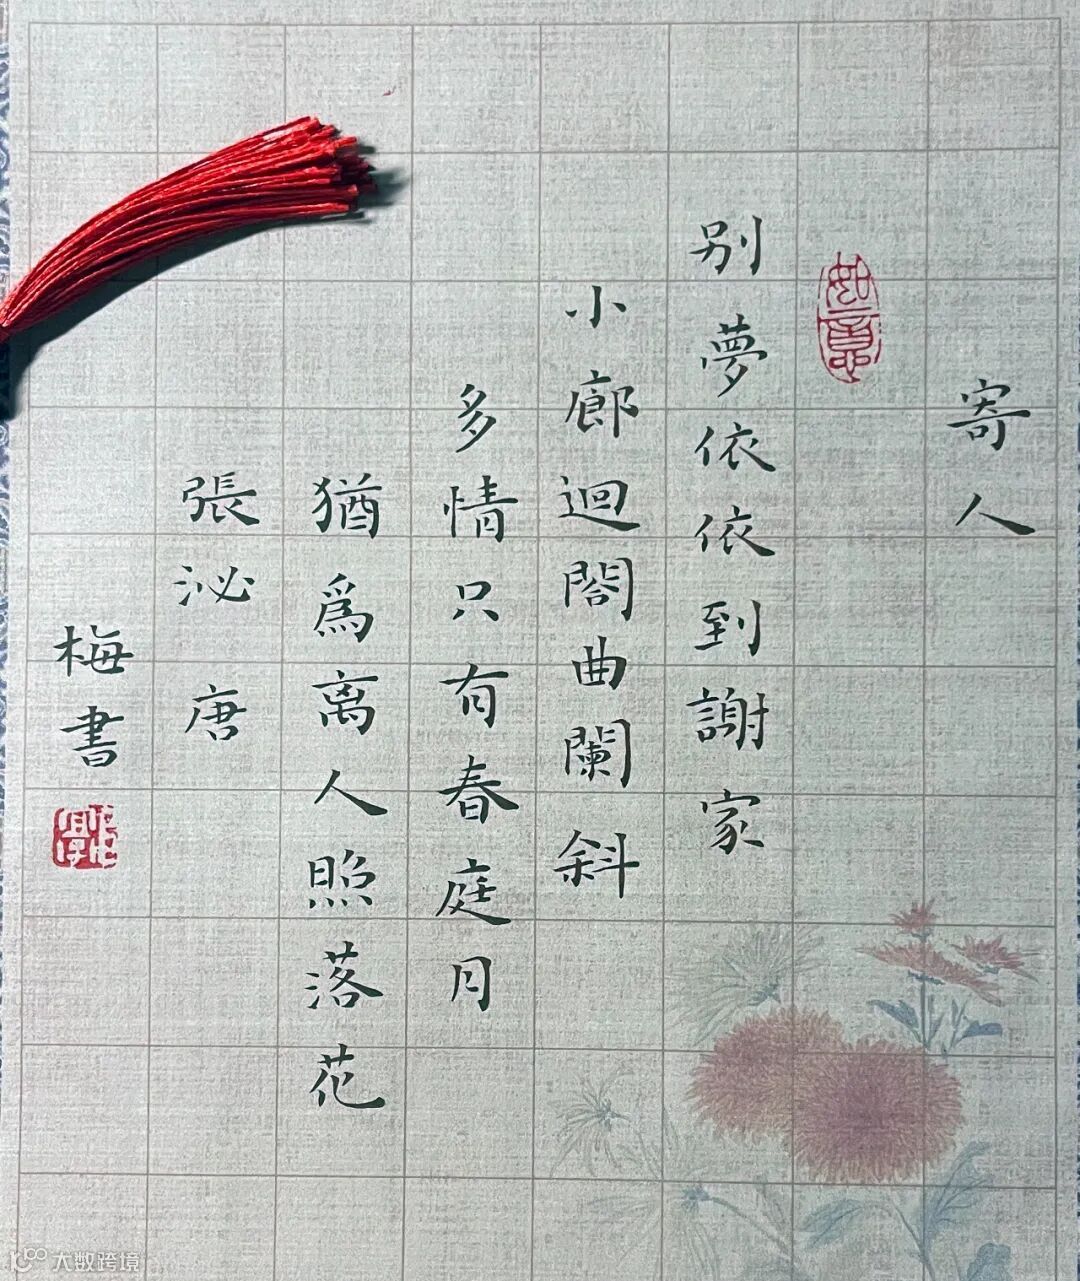 寄人
如意
别夢依依到謝家
小廊迴閤曲闌斜
多情只有春庭月
猶爲离人照落花
張泌唐
梅書
大数跨境